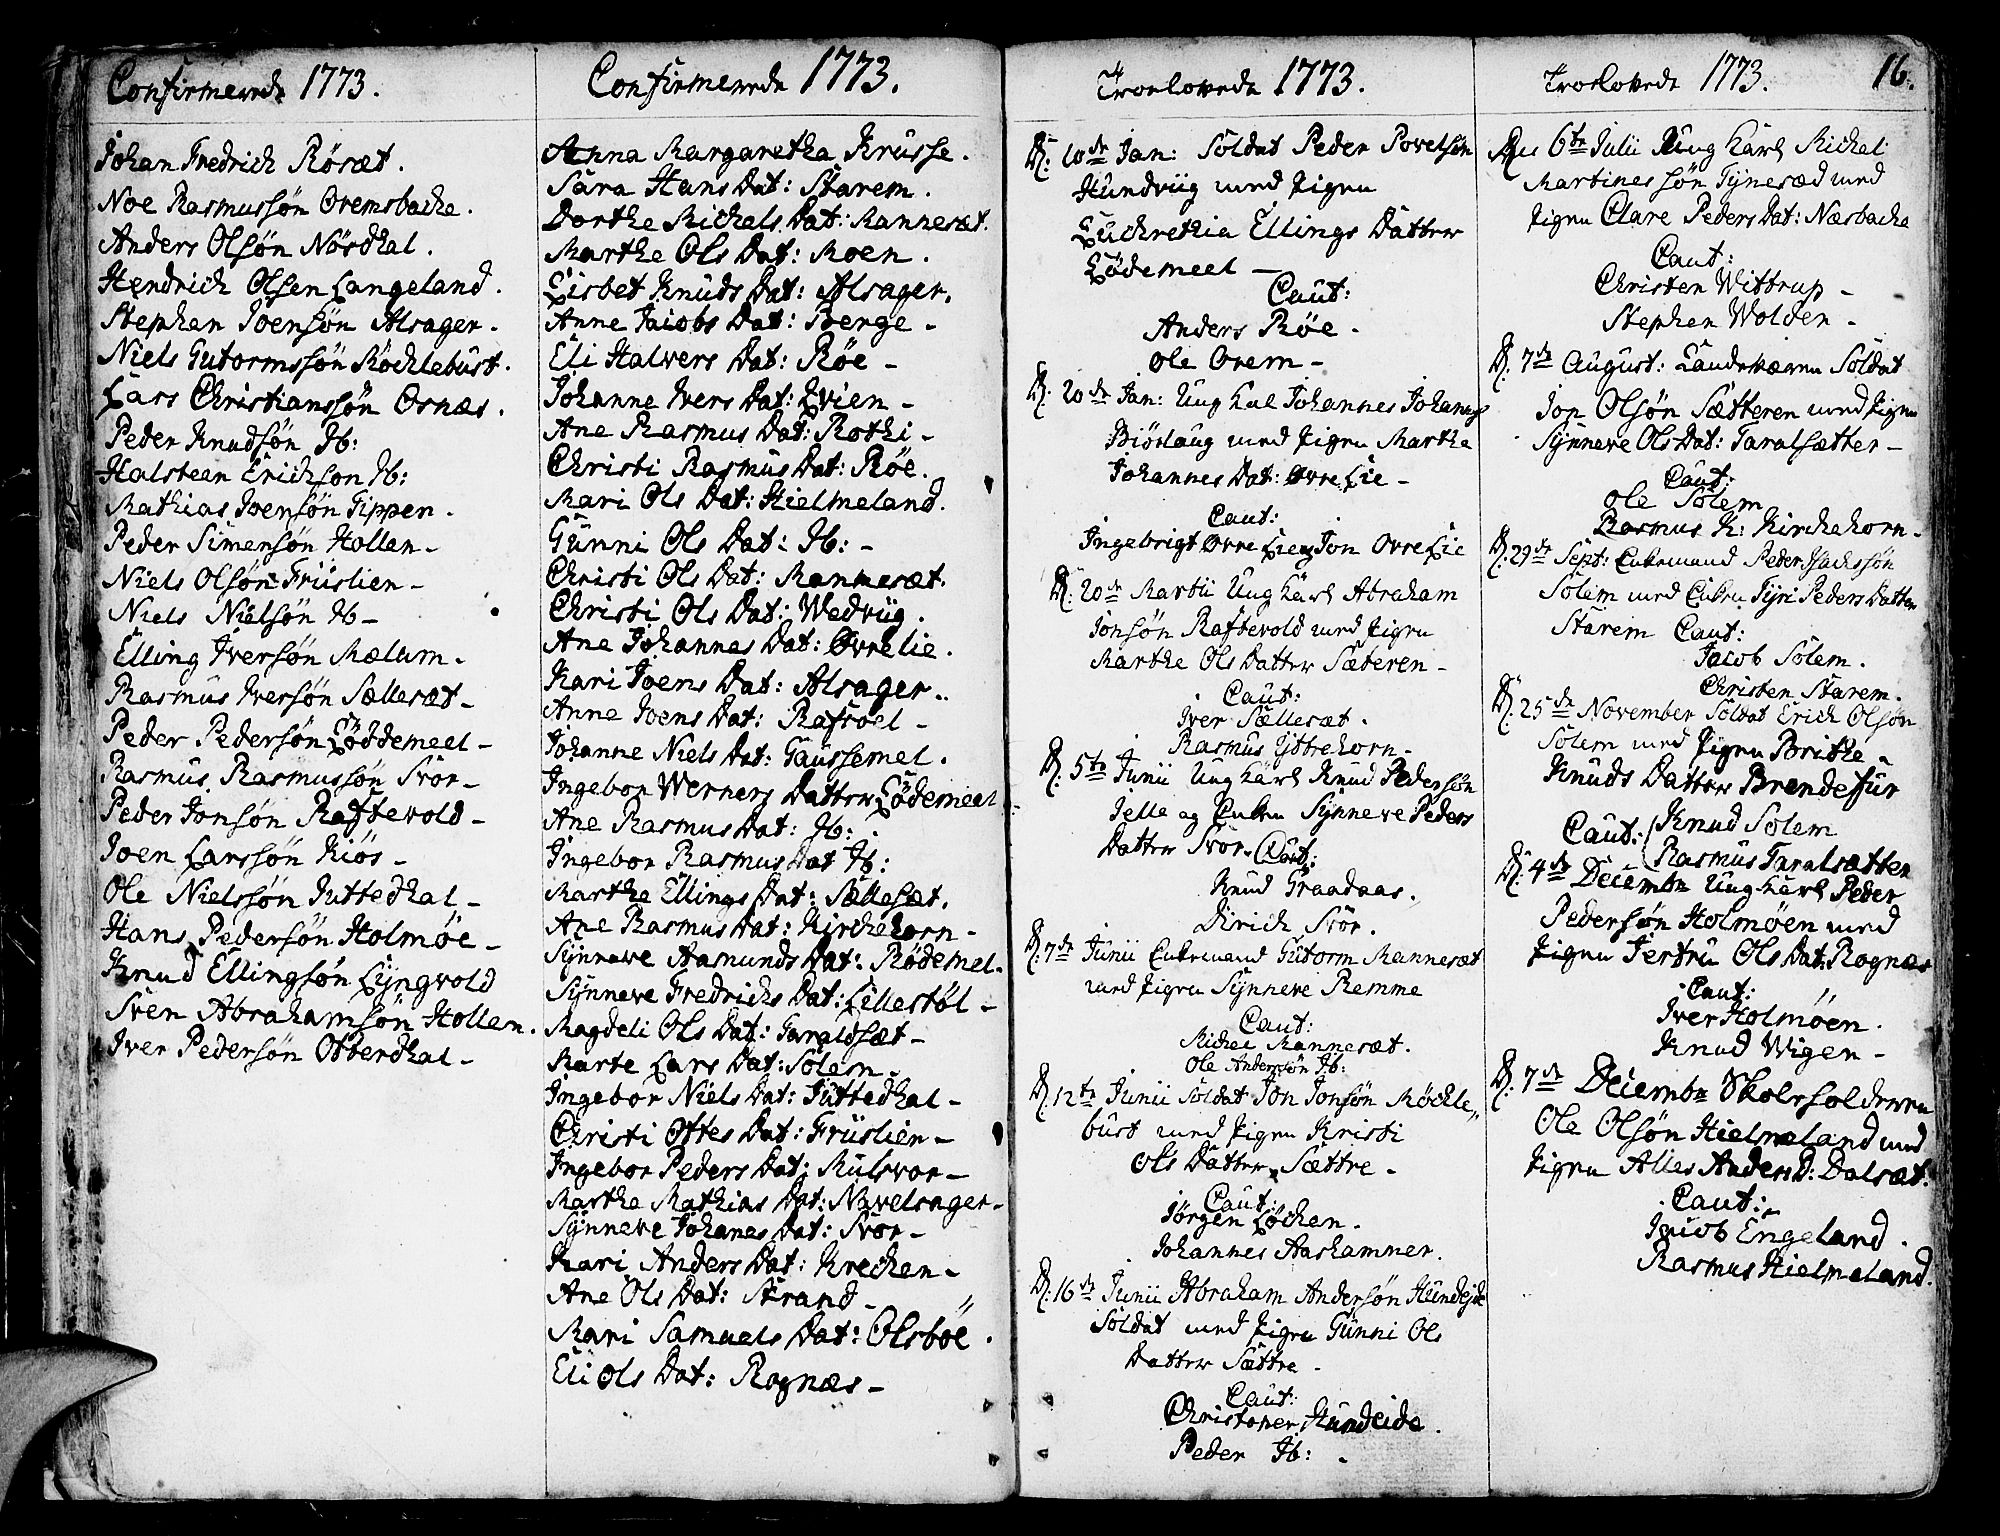 Confirmerede 1773.
Johan Fredrich Røsæt.
Noe Rasmussøn Oremsbache.
Anders Olsøn Nösdhal.
Hendrich Olsen Langeland.
Stephen Joensøn Alsager.
Niels Gutormssøn Röchlebust.
Lars Christianssøn Osnæs.
Peder Knudsøn Ib:
Halsteen Erichson Ib:
Mathias Joensøn Tippen.
Peder Simensøn Hollen-
Niels Olsøn Früslien-
Niels Nielsøn Ib-
Elling Iversøn Mælum-
Rasmus Iversøn Sællesæt-
Peder Pedersøn Löddemeel-
Rasmus Rasmussøn Svor-
Peder Jonsøn Raftevold-
Joen Larssøn Kiös-
Ole Nielssøn Juttedhal-
Hans Pedersøn Holmöe-
Knud Ellingsøn Lyngvold
Sven Abrahamsøn Hollen.
Iver Pedersøn Otterdhal-
Confirmerede 1773.
Anna Margaretha Krusse.
Sara Hans Dat: Starem.
Dorthe Michels Dat: Mannesæt.
Marthe Ols Dat: Moen.
Lisbet Knuds Dat: Alsager.
Anne Jacobs Dat: Berge-
Eli Halvers Dat: Røe-
Johanne Ivers Dat: Lvien-
Ane Rasmus Dat: Rothi-
Christi Rasmus Dat: Röe.
Mari Ols Dat: Hielmeland.
Gunni Ols Dat: Ib:-
Christi Ols Dat: Mannesæt.
Christi Ols Dat: Wedvüg.
Ane Johannes Dat: Øvrelie.
Kari Joens Dat: Alsager.
Anne Joens Dat: Rafroel-
Johanne Niels Dat: Taussemel.
Ingebor Werners Datter Lödemeel
Ane Rasmus Dat: Ib:
Ingebor Rasmus Dat Ib:
Marthe Ellings Dat: Sællesæt.
Ane Rasmus Dat: Kirchehorn-
Synneve Aamunds Dat: Rödemel.
Synneve Fredrichs Dat: Lillestöl-
Magdeli Ols Dat: Taraldsæt-
Marte Lars Dat: Solem-
Ingebor Niels Dat: Juttedhal-
Christi Oftes Dat: Früslien-
Ingebor Peders Dat: Mulsvor-
Marthe Mathias Dat: Navelsager-
Synneve Johanes Dat: Svor-
Kari Anders Dat: Krechen-
Ane Ols Dat: Strand-
Mari Samuels Dat: Olsböe.
Eli Ols Dat: Rognæs-
Troelovede 1773.
D: 10de Jan: Soldat Peder Povelsøn
Hundviig med Pigen
Luchrethia Ellings Datter
Lödemeel-
Caut:
Anders Röe.
Ole Orem-
D: 20de Jan: Ung Kal Johannes Johannes
Biörlaug med Pigen Marthe
Johannes Dat: Øvre Lie-
Caut:
Ingebrigt Øvre Lie og Jon Øvre Lie
D: 20de Martii Ung Karl Abraham
Jonsøn Raftevold med Pigen
Marthe Ols Datter Sæteren-
Caut:
Iver Sællesæt.
Rasmus Yttrehorn-
D: 5te Junii Ung Karl Knud Pedersøn
Jelle og Enken Synneve Peders
Datter Svor. Caut:
Knud Graadaas.
Dirich Svör.
D: 7de Junii Enkemand Gutorm Mannesæt
med Pigen Synneve Remme
Caut:
Michel Mannesæt.
Ole Andersøn Ib:
D: 12te Junii Soldat Jon Jonsøn Röchle,,
bust med Pigen Kristi
Ols Datter Sættre-
Caut:
Jörgen Löchen.
Johannes Aashammer.
D: 16de Junii Abraham Andersøn Hundeide
Soldat med Pigen Gunni Ols
Datter Sættre-
Caut:
Christopher Hundeide.
Peder Ib:
Troelovede 1773. 16.
Den 6te Julii Ung Karl Michal
Martines søn Tynesæd med
Pigen Clare Peders Dat: Næsbache
Caut:
Christen Wittrup-
Stephen Wolden-
D: 7de August: Landeværn Soldat
Jon Olsøn Sætteren med Pigen
Synneve Ols Dat: Taralsætter-
Caut:
Ole Solem
Rasmus K: Kirchehorn-
D: 29de Sept: Enkemand Peder Isachssøn
Solem med Enken Tyri Peders Datter
Starem Caut:
Jacob Solem.
Christen Starem.
D: 25de November Soldat Erich Olsøn
Solem med Pigen Brithe-
Knuds Datter Brendefur
Caut: Knud Solem
Rasmus Taralsætter
D: 4de Decembr Ung Karl Peder
Pedersøn Holmöen med
Pigen Jertru Ols Dat: Rognæs
Caut:
Iver Holmöen.
Knud Wigen-
D: 7de Decembr Skolesolderen
Ole Olsøn Hielmeland med
Pigen Alles Anders D: Dalsæt.
Caut:
Jacob Engeland.
Rasmus Hielmeland.